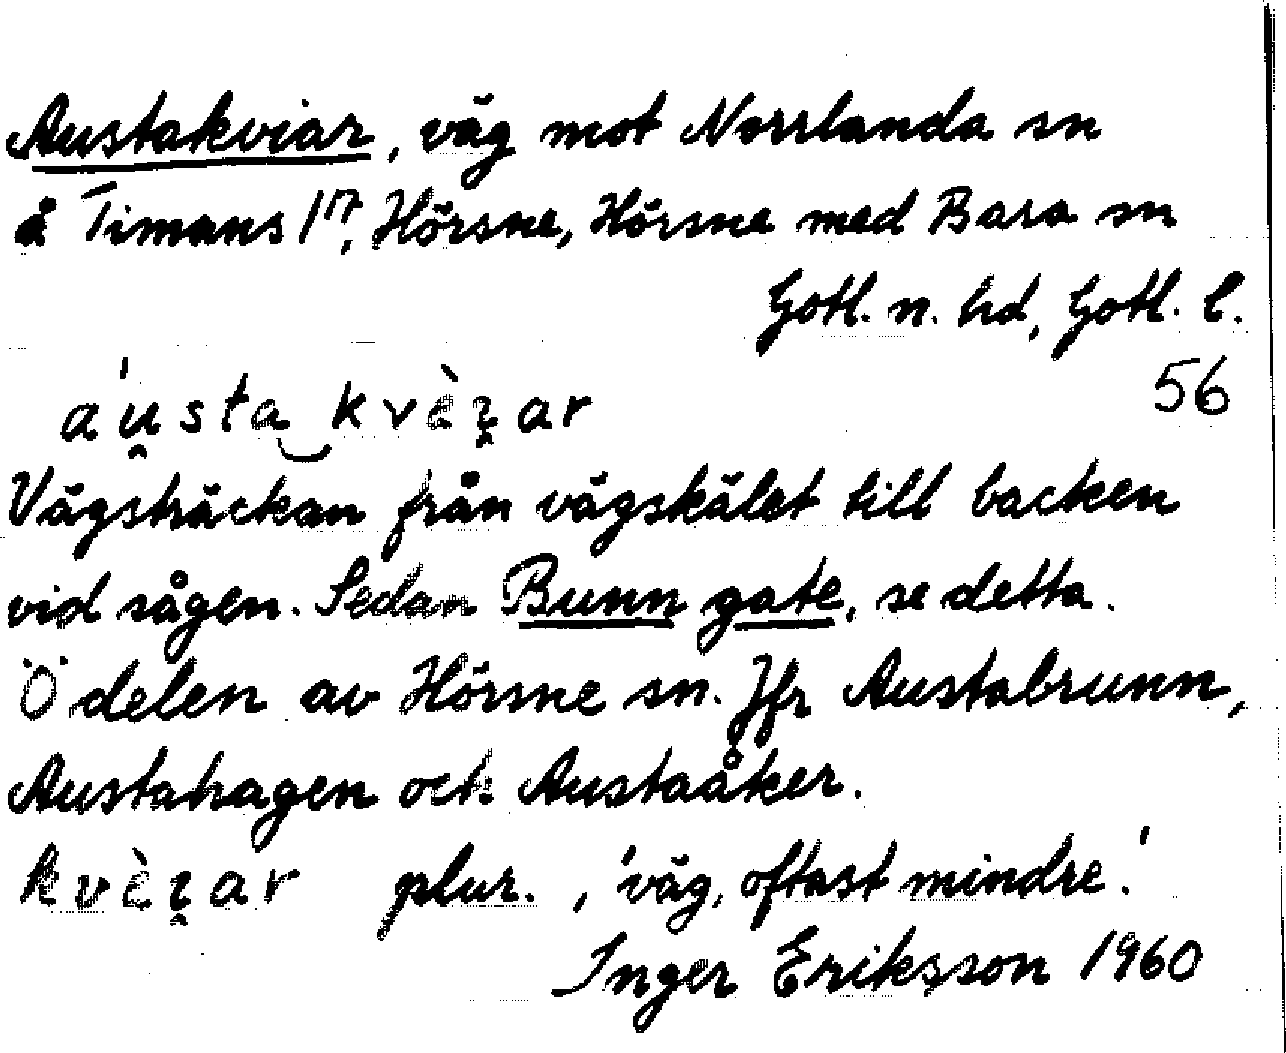 Austakviar, väg mot Norrlanda sn
å Timans 1¹⁷, Hörsne, Hörsne med Bara sn
Gotl. n. hd, Gotl. l.
56
áu̯sta‿kvèı̯ar
Vägsträckan från vägskälet till backen
vid sågen. Sedan Bunn gate, se detta.
Ö delen av Hörsne sn. Jfr Austabrunn,
Austahagen och Austaåker.
kvèı̯ar plur., 'väg, oftast mindre.'
Inger Eriksson 1960